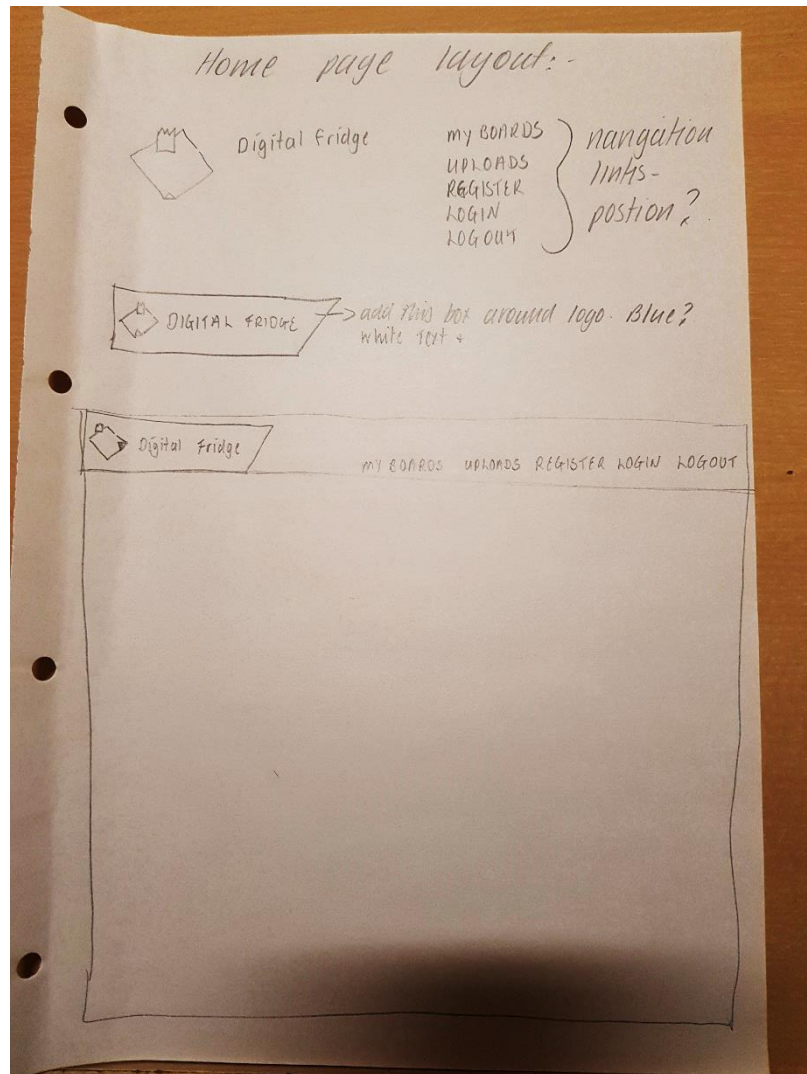 Home page layout:-
Digital Fridge
MY BOARDS
UPLOADS
REGISTER
LOGIN
LOGOUT
nangation
links-
postion?
DIGITAL FRIDGE
add this box around logo. Blue?
white Text +
Digital Fridge
MY BOARDS UPLOADS REGISTER LOGIN LOGOUT